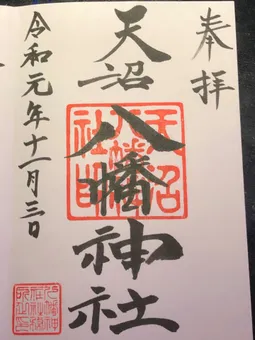 奉拝
天沼八幡神社
令和元年十一月三日
天沼八幡社印